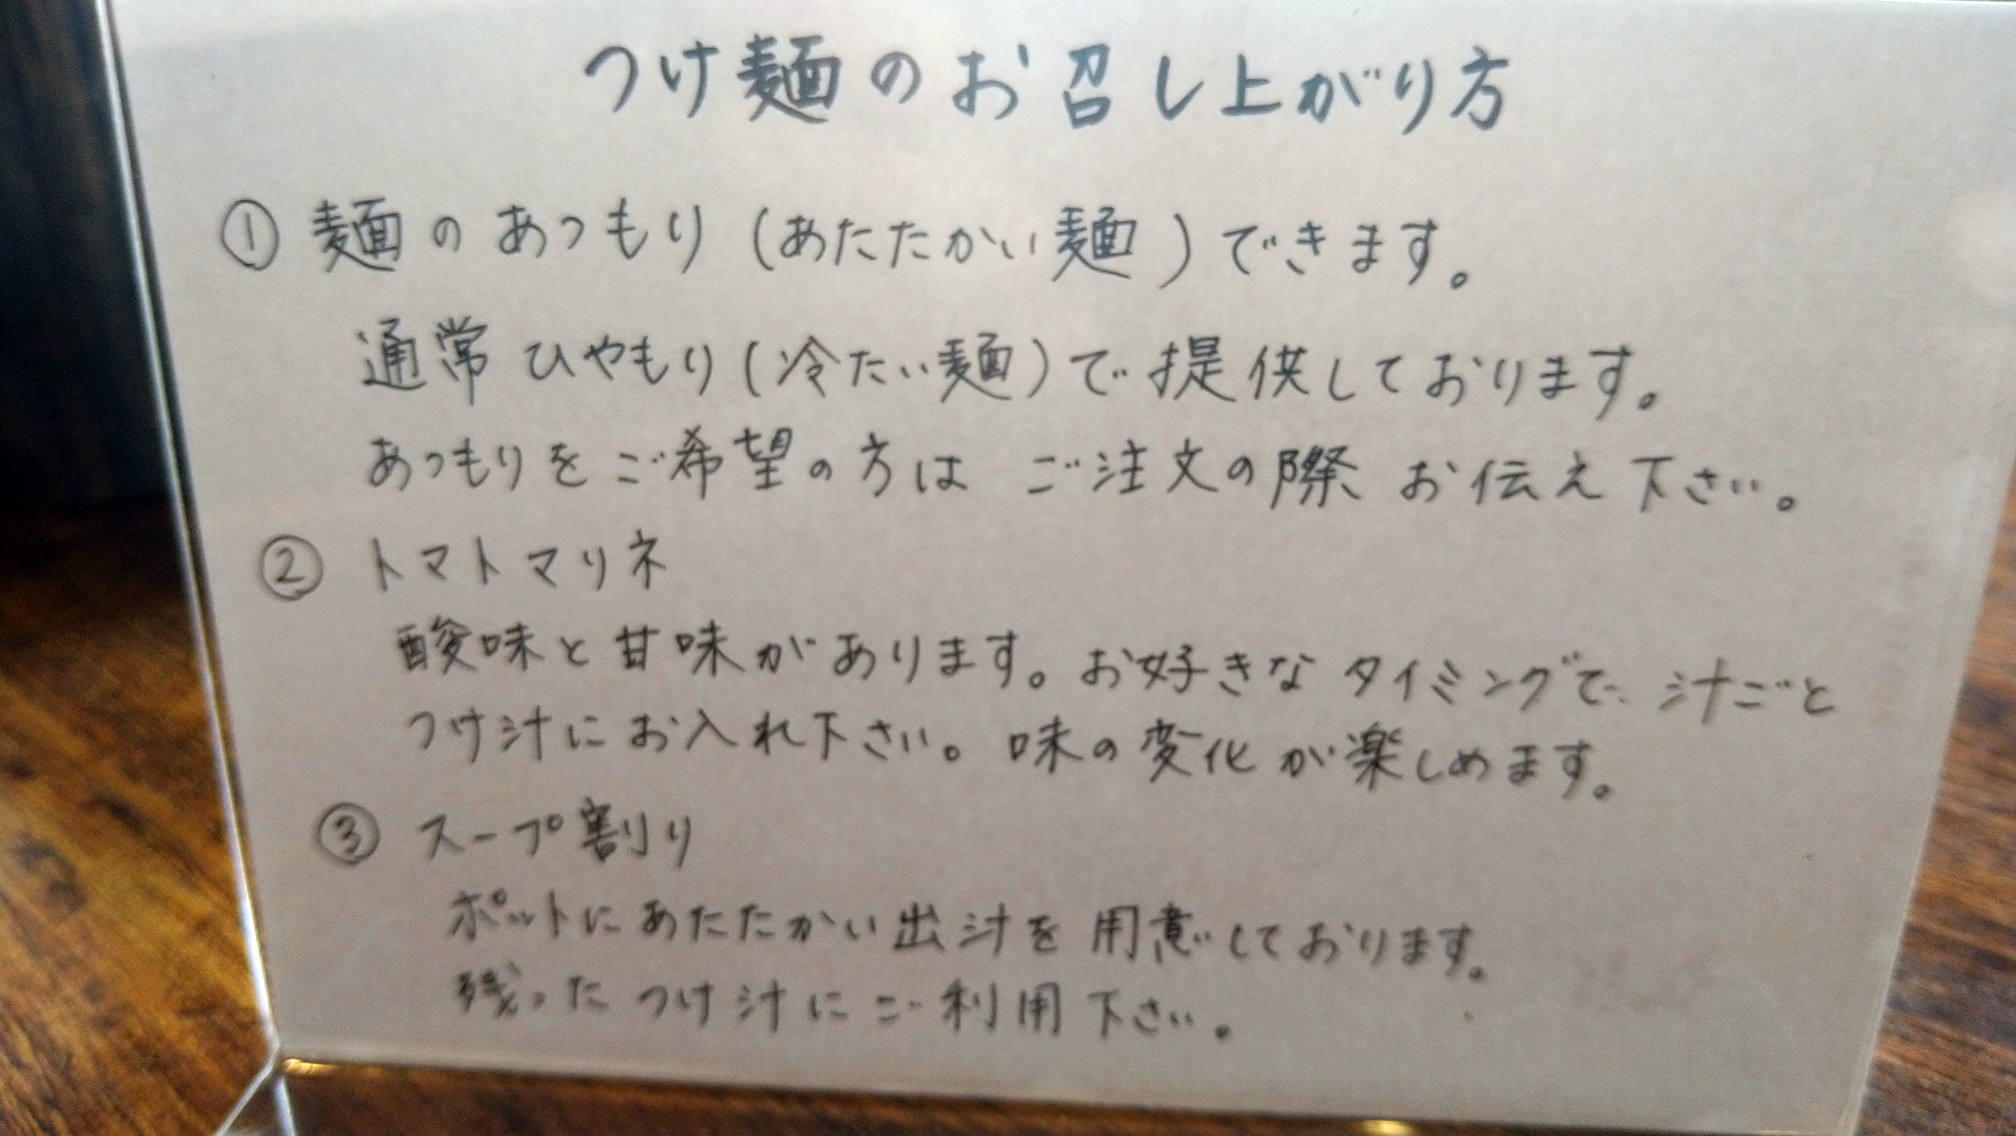 つけ麺のお召し上がり方
① 麺のあつもり(あたたかい麺)できます。
通常ひやもり(冷たい麺)で提供しております。
あつもりをご希望の方は ご注文の際 お伝え下さい。
② トマトマリネ
酸味と甘味があります。お好きなタイミングで、汁ごと
つけ汁にお入れ下さい。味の変化が楽しめます。
③ スープ割り
ポットにあたたかい出汁を用意しております。
残ったつけ汁にご利用下さい。